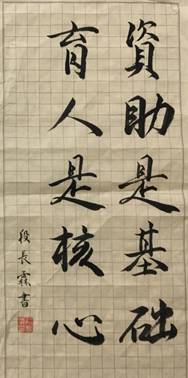 資助是基础
育人是核心
段長霖書